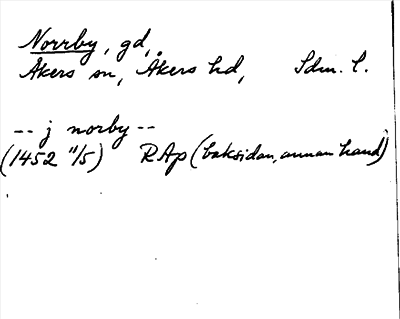 Norrby, gd,
Åkers sn, Åkers hd, Sdm. l.
-- j norby --
(1452 11/5) RAp (baksidan, annan hand)